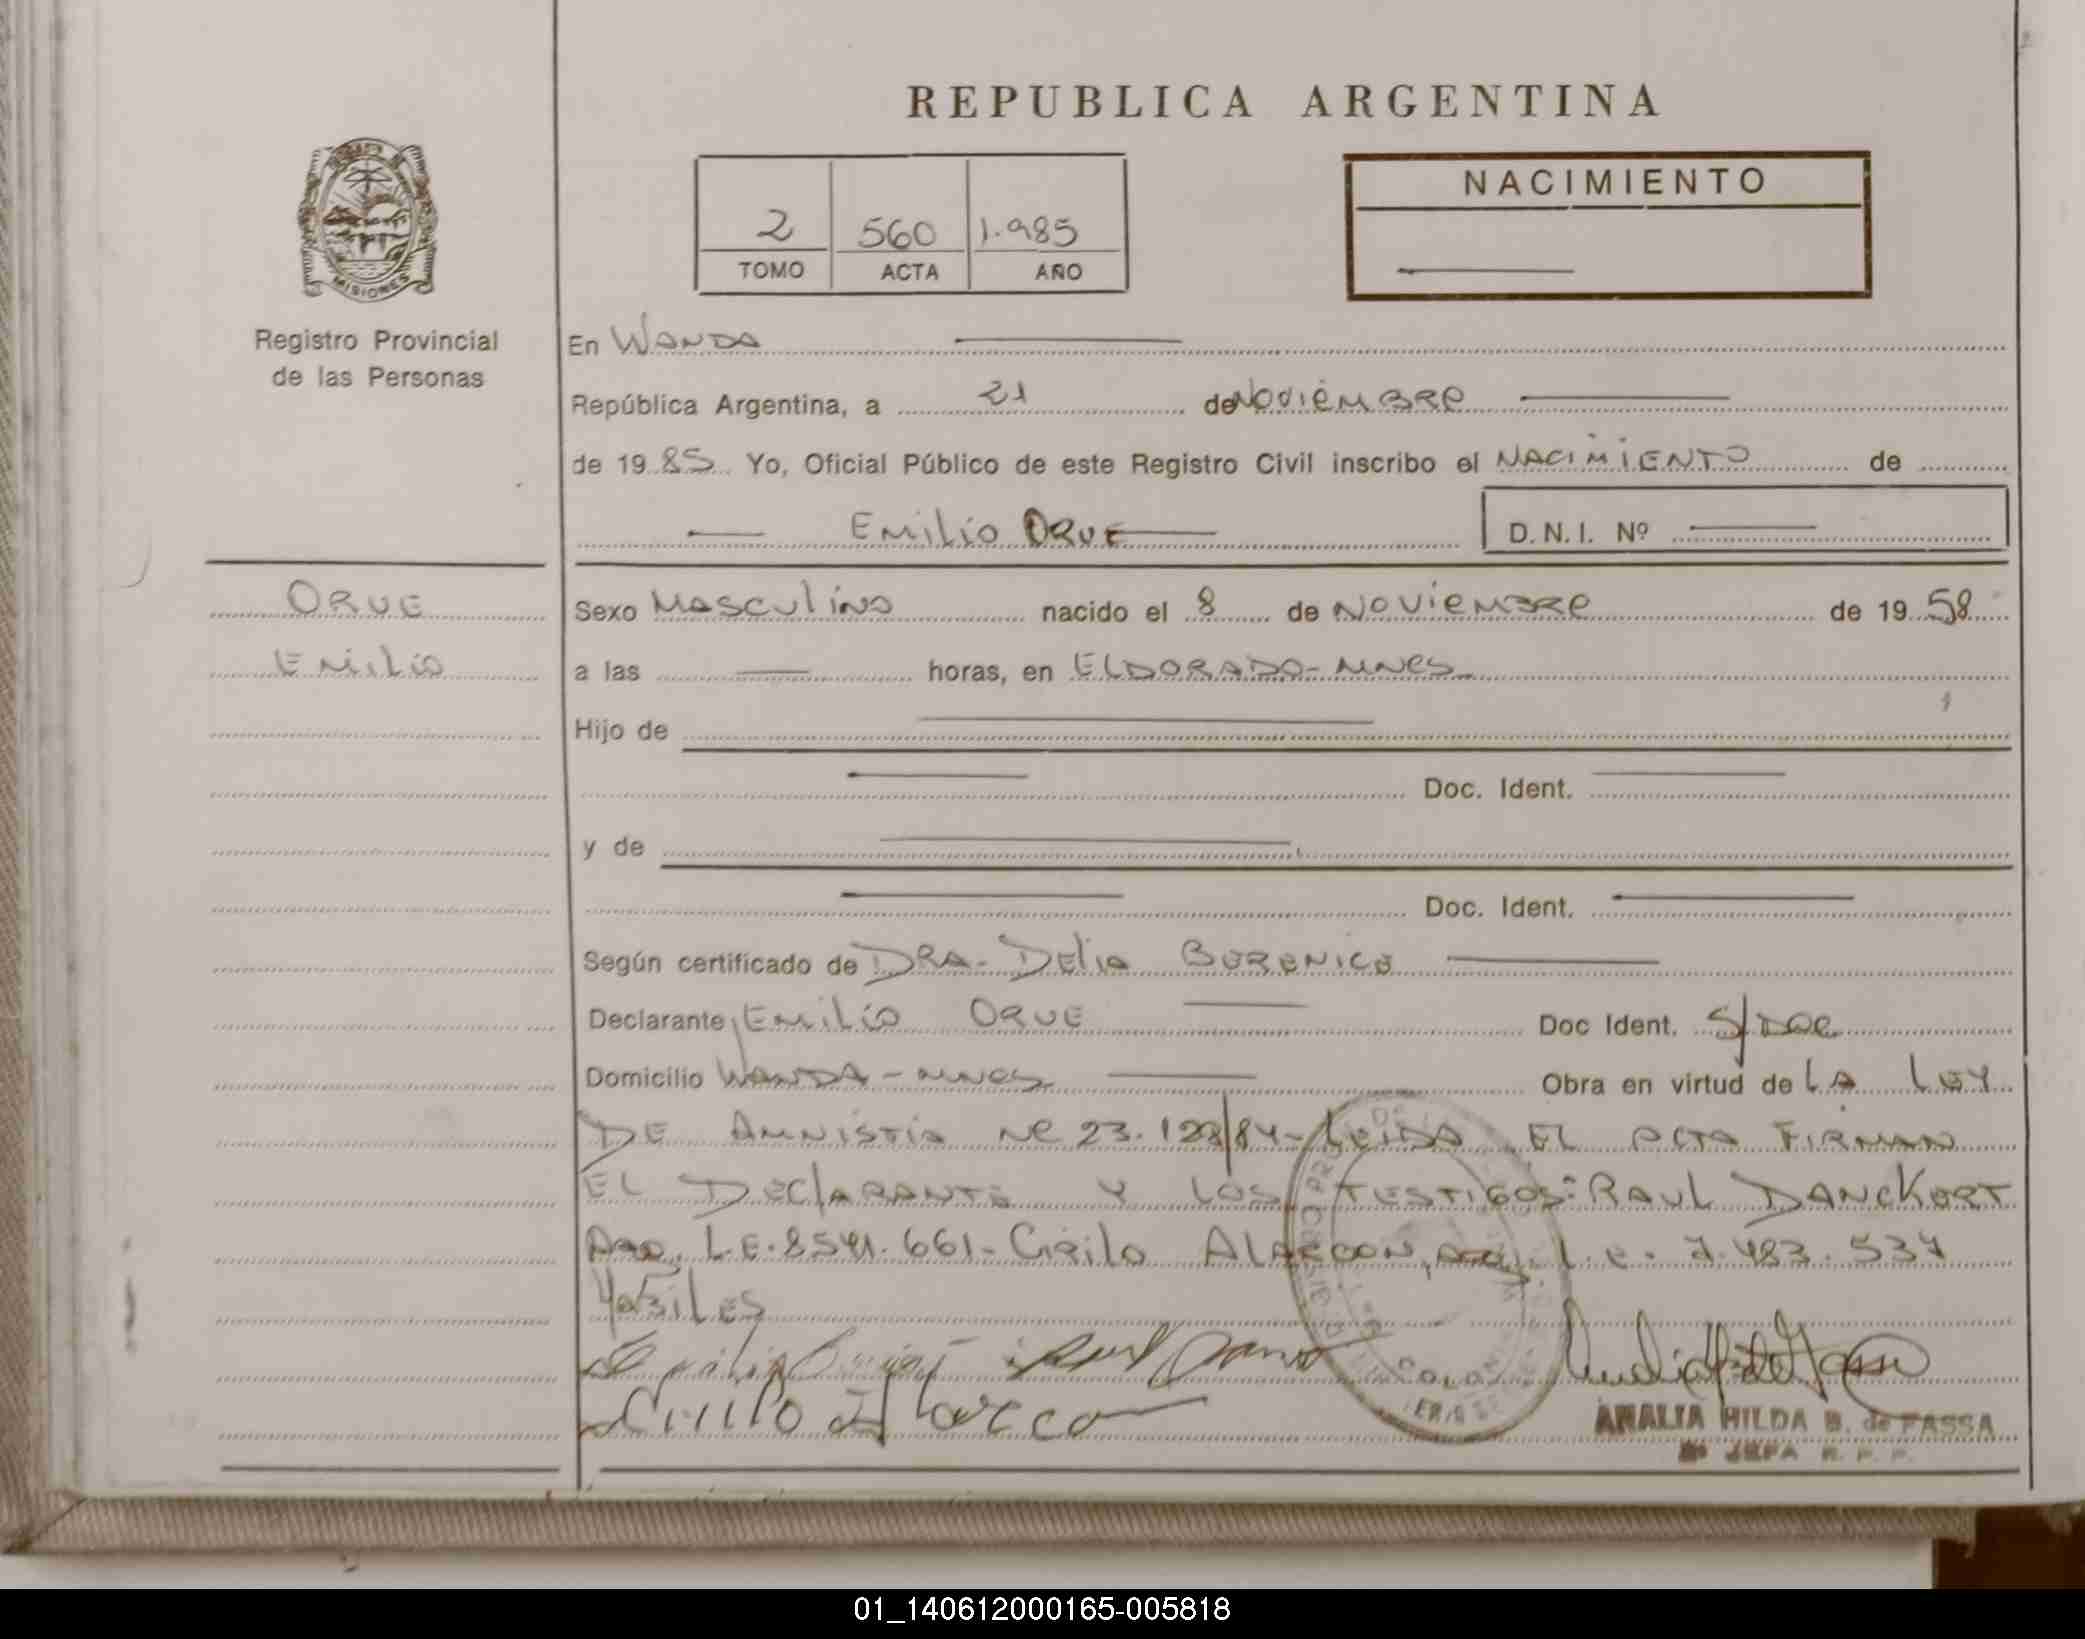 REPUBLICA ARGENTINA
MISIONES
Registro Provincial
de las Personas
2 560 1.985
TOMO ACTA AÑO
NACIMIENTO
En WANDA
República Argentina, a 21 de NOVIEMBRE
de 1985 Yo, Oficial Público de este Registro Civil inscribo el NACIMIENTO de
EMILIO ORUE D.N.I. Nº
ORUE
EMILIO
Sexo MASCULINO nacido el 8 de NOVIEMBRE de 1958
a las horas, en ELDORADO-MNES
Hijo de
Doc. Ident.
y de
Doc. Ident.
Según certificado de DRA- DELIA BERENICE
Declarante EMILIO ORUE Doc Ident. S/DOC
Domicilio WANDA-MNES Obra en virtud de LA LEY
DE AMNISTIA Nº 23.128/84- LEIDA EL ACTA FIRMAN
EL DECLARANTE Y LOS TESTIGOS: RAUL DANCKERT
ARG. L.E. 8541.661- CIRILO ALARCON, ARG. L.E. 7.483.534
HABILES
ANALIA HILDA B. de FASSA
JEFA R. P. P.
01_140612000165-005818